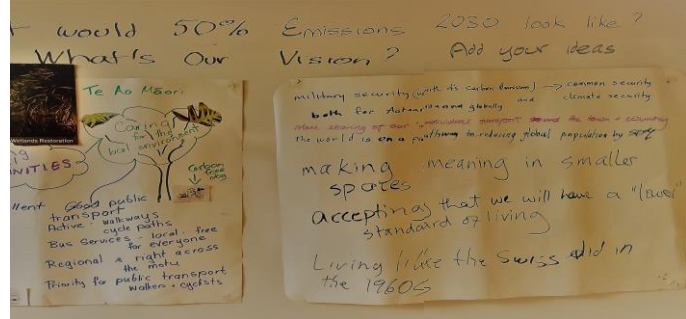 would 50% Emissions 2030 look like?
What's Our Vision? Add your ideas
Wetlands Restoration
Te Ao Māori
Caring
for the
local environment
Carbon
free
NITIES
llent Good public
transport
Active - walkways
cycle paths
Bus Services - local - free
for everyone
Regional & right across
the motu
Priority for public transport
walkers + cyclists
military security (with its carbon bootprint) → common security
both for Aotearoa and globally and climate security
More sharing of our
The world is on a pathway to reducing global population by
making meaning in smaller
spaces
accepting that we will have a "lower"
standard of living
Living like the Swiss did in
the 1960s